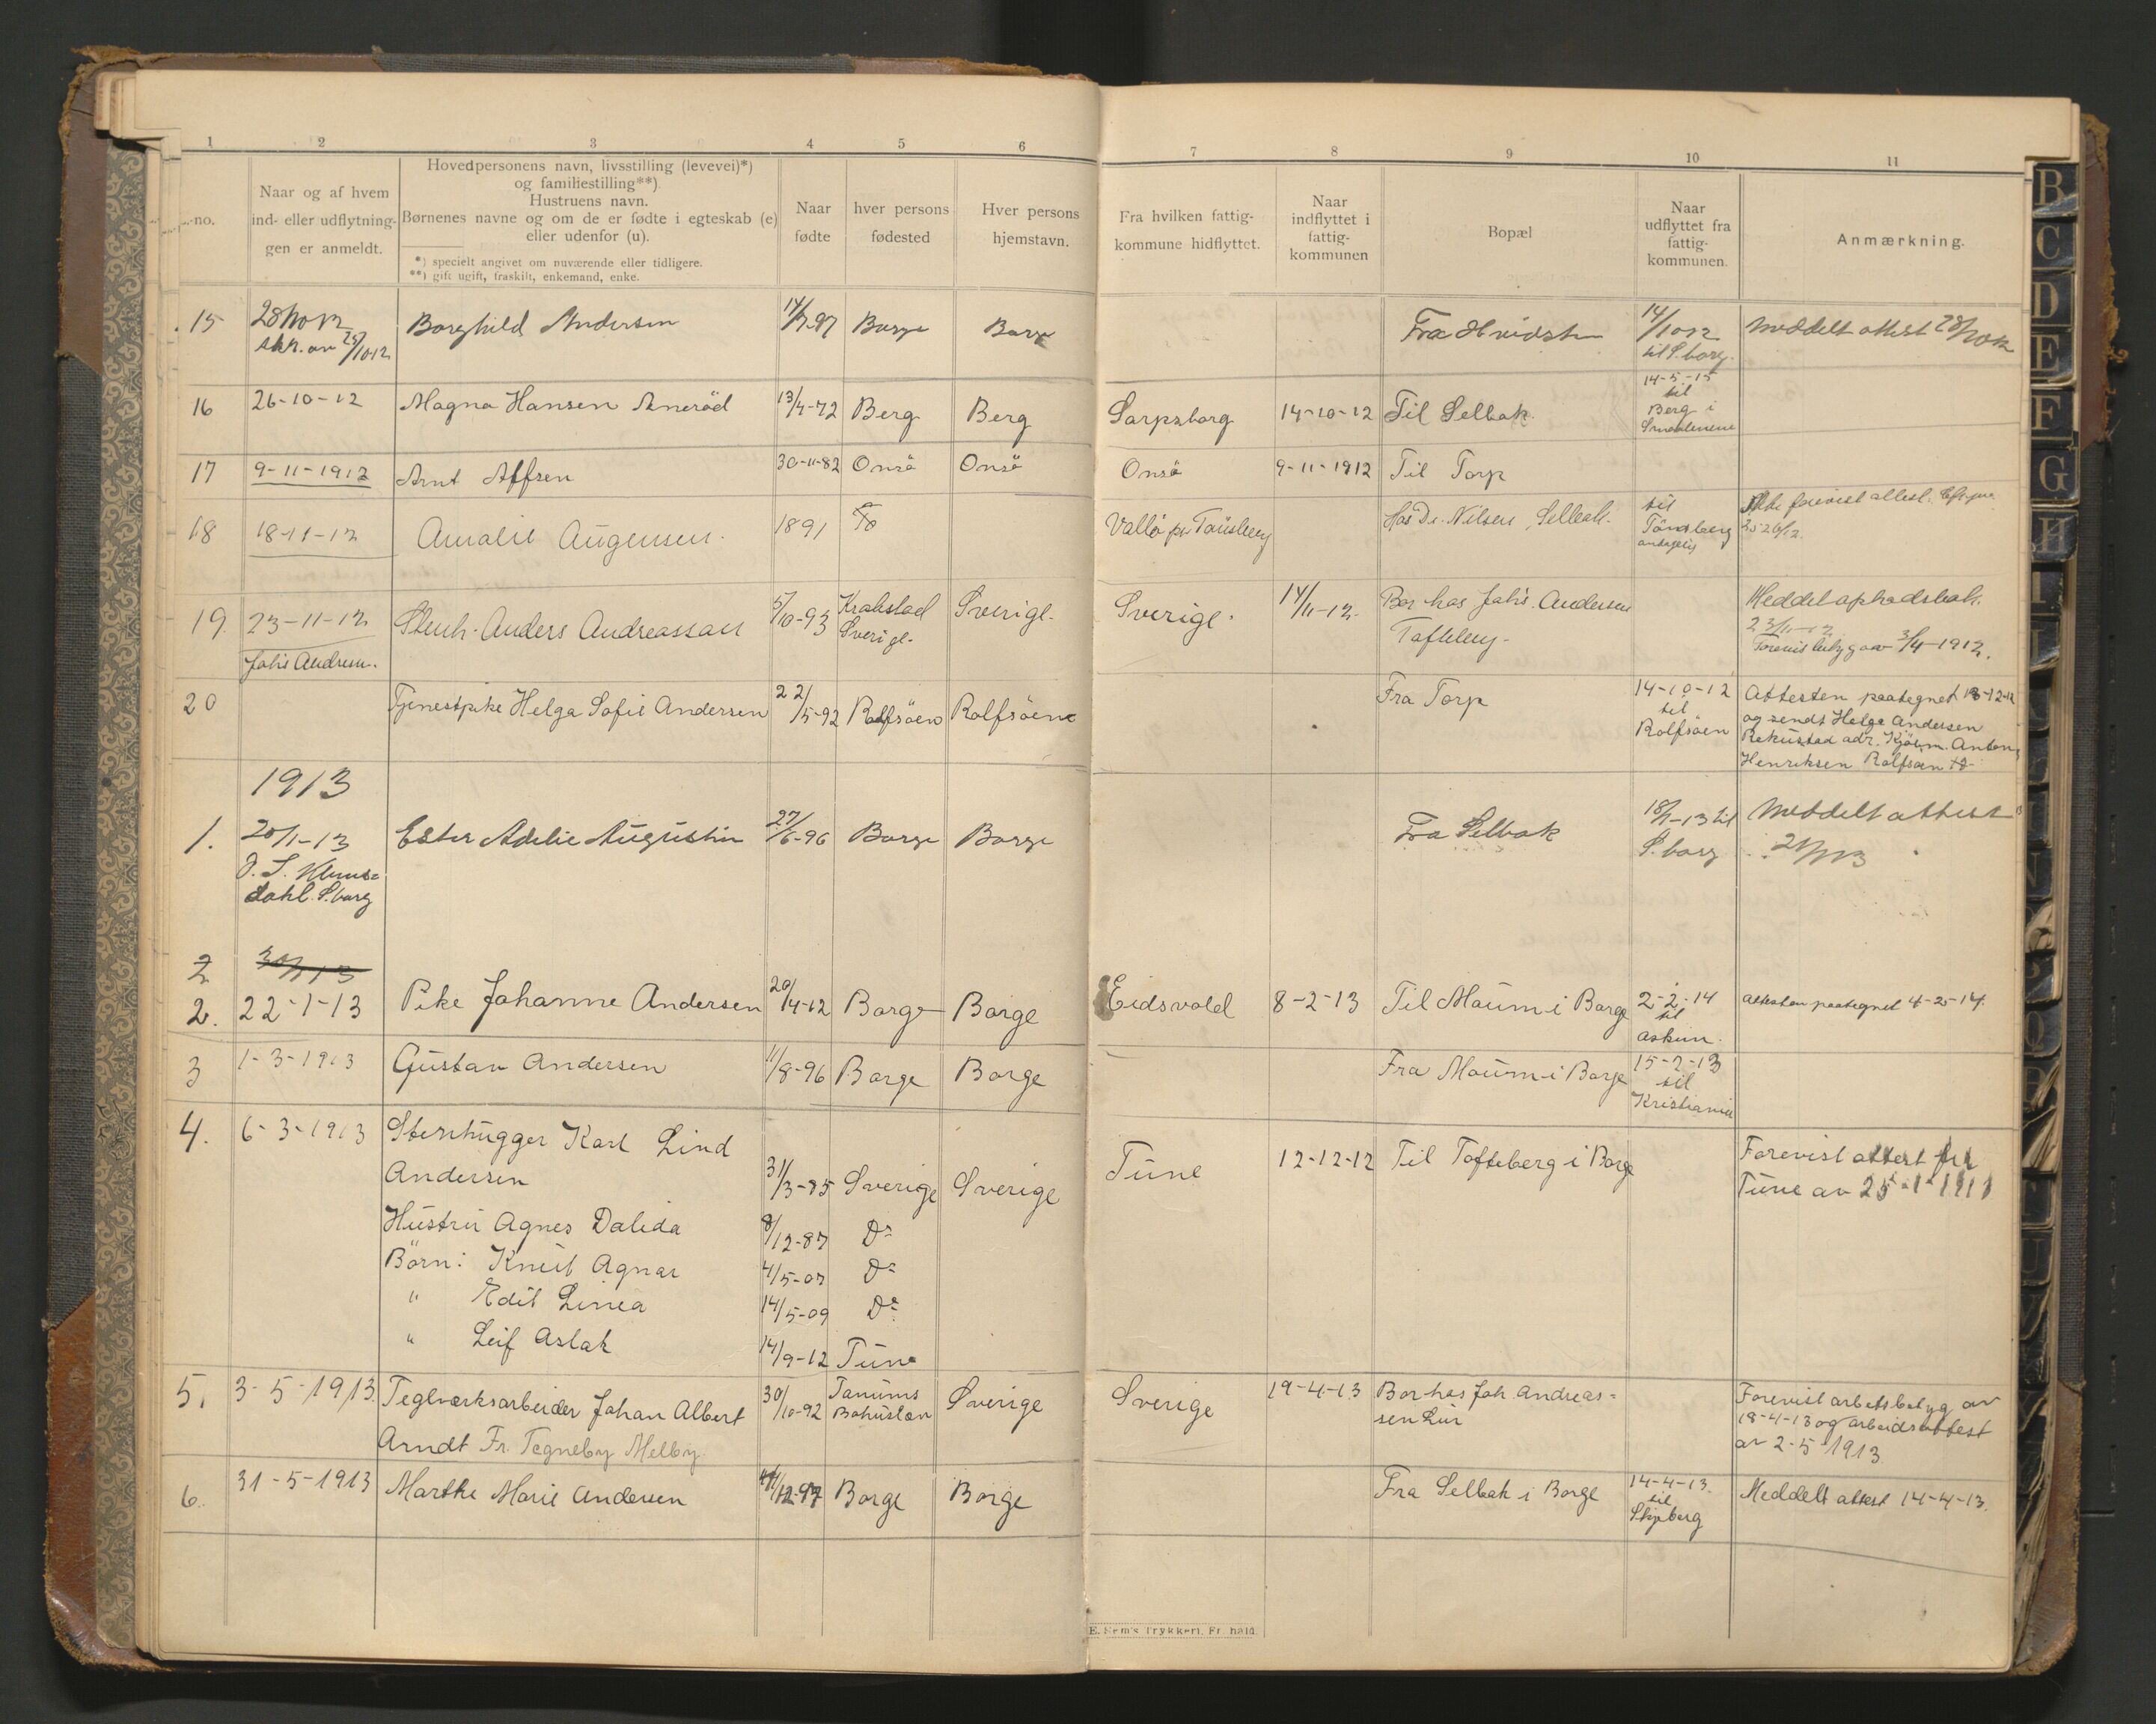 1 2 3 4 5 6 7 8 9 10 11
no.
Naar og af hvem
ind- eller udflytnin-
gen er anmeldt.
Hovedpersonens navn, livsstilling (levevei)*)
og familiestilling**).
Hustruens navn.
Børnenes navne og om de er fødte i egteskab (e)
eller udenfor (u).
*) specielt angivet om nuværende eller tidligere.
**) gift ugift, fraskilt, enkemand, enke.
Naar
fødte
hver persons
fødested
Hver persons
hjemstavn.
Fra hvilken fattig-
kommune hidflyttet.
Naar
indflyttet i
fattig-
kommunen
Bopæl
Naar
udflyttet fra
fattig-
kommunen.
Anmærkning.
15 Borghild Andersen 14/7-97 Borge Borge Fra 14/10 12 Meddelt attest
skr. av 25/10-12 til S.borg.
16 26-10-12 Magna Hansen 13/4-72 Berg Berg Sarpsborg 14-10-12 Til Selbak 14-5-15
til
Berg i
Smaalenene
17 9-11-1912 Arnt Alfsen 30-11-82 Onsö Onsö Onsö 9-11-1912 Til Torp
18 18-11-12 Amalie Augensen. 1891 Vallö pr Tønsberg Hos Dr. Nilsen, Selbak. til
Tønsberg
Ikke forevist attest.
19. 23-11-12 Stenh. Anders Andreassen 5/10-93 Krakstad Sverige. Sverige. 14/11-12. Bor hos Johs. Andersen
Sverige. Tofteberg. Meddelt opholdsbok.
23/11-12
Johs Andresen. Forevist betyg av 3/4-1912.
20 Tjenestpike Helga Sofie Andersen 22/5-92 Rolfsöen Rolfsöen Fra Torp 14-10-12
til
Rolfsöen
Attesten paategnet 18-12-12
og sendt Helga Andersen
adr. Kjöbm. Anton
Henriksen Rolfsöen
1913
1. 20/1-13 Ester Adelie Augustin 27/6-96 Borge Borge Fra Selbak 18/1-13 til
S.borg
Meddelt attest
21/1 13
dahl. S.borg
2 30/1 13
2. 22-1-13 Pike Johanne Andersen 20/4-12 Borge Borge Eidsvold 8-2-13 Til Moum i Borge 2-2-14
til
Askim.
attesten paategnet 4-2-14.
3 1-3-1913 Gustav Andersen 11/8-96 Borge Borge Fra Moum i Borge 15-2-13
til
Kristiania
4. 6-3-1913 Stenhugger Karl Lind
Andersen 31/3-85 Sverige Sverige Tune 12-12-12 Til Tofteberg i Borge Forevist attest fra
Tune av 25-1-1913
Hustru Agnes Dalida 8/12-87 Do
Börn: Knut Agnar 4/5-07 Do
" Edit Linea 14/5-09 Do
" Leif Aslak 14/9-12 Tune
5. 3-5-1913. Teglverksarbeider Johan Albert 30/10-92 Tanums Sverige Sverige 19-4-13 Bor hos Joh. Andreas-
Bohuslän sen Lur
Arndt Fr. Tegneby Melby
Forevist arbetsbetyg av
18-4-13 og arbeidsattest
av 2-5-1913
6. 31-5-1913 Marthe Marie Andersen Borge Borge Fra Selbak i Borge 14-4-13.
til
Skjeberg
Meddelt attest 14-4-13.
E. Sem's Trykkeri, Fr.hald.
B
C
D
E
F
G
H